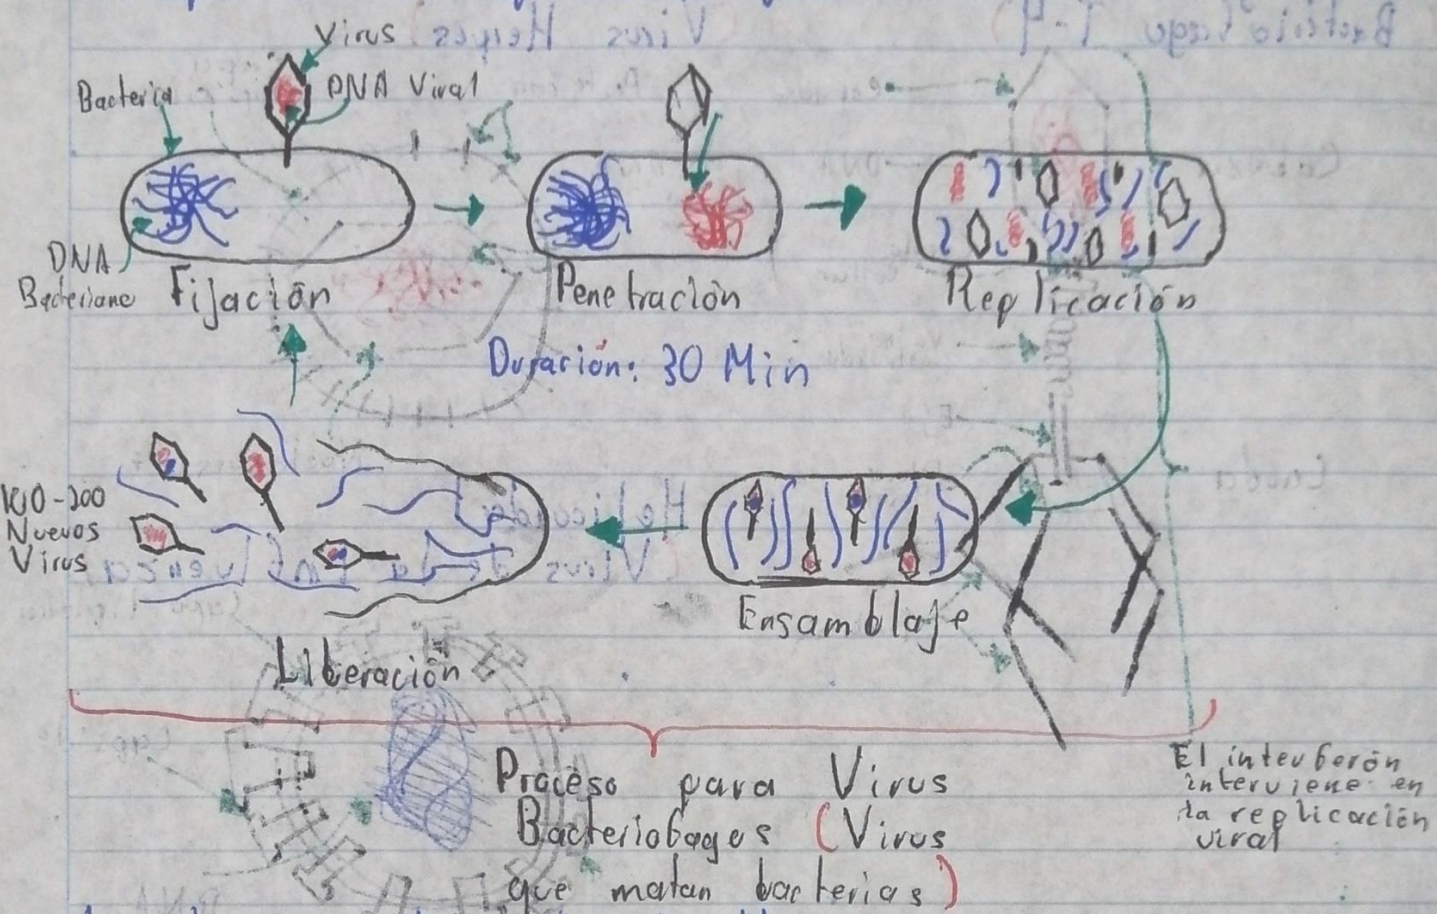 Virus
Bacteria
DNA Viral
DNA
Bacteriano
Fijación
Penetración
Replicación
Duración: 30 Min
100-200
Nuevos
Virus
Liberación
Ensamblaje
Proceso para Virus
Bacteriofages (Virus
que matan bacterias)
El interferón
interviene en
la replicación
viral